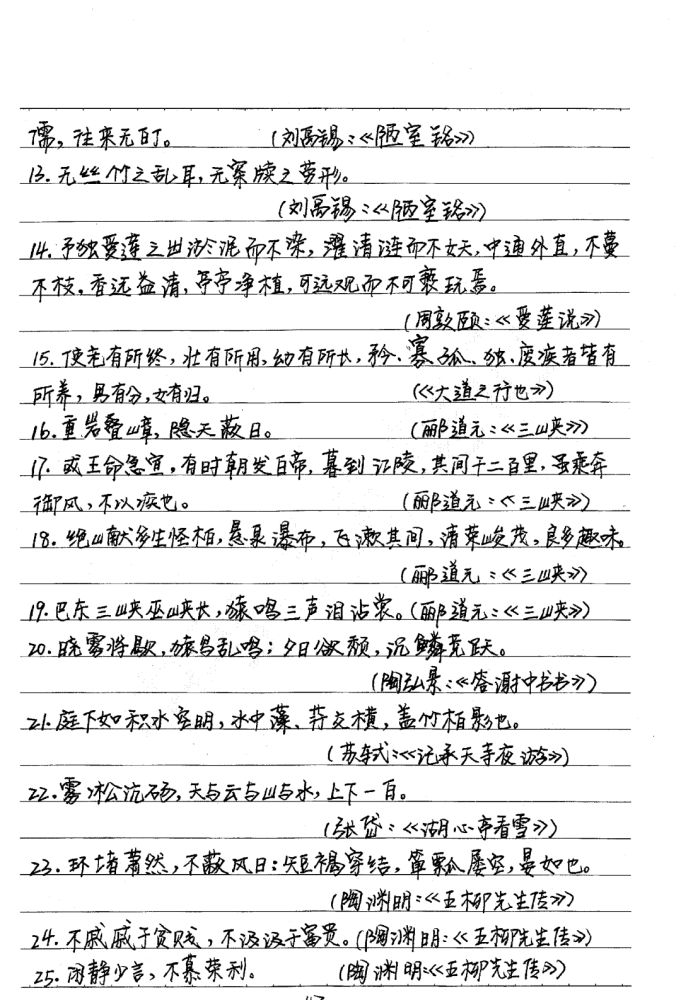 儒,往来无白丁。 (刘禹锡:《陋室铭》)
13. 无丝竹之乱耳,无案牍之劳形。
(刘禹锡:《陋室铭》)
14. 予独爱莲之出淤泥而不染,濯清涟而不妖,中通外直,不蔓
不枝,香远益清,亭亭净植,可远观而不可亵玩焉。
(周敦颐:《爱莲说》)
15. 使老有所终,壮有所用,幼有所长,矜、寡、孤、独、废疾者皆有
所养,男有分,女有归。 (《大道之行也》)
16. 重岩叠嶂,隐天蔽日。 (郦道元:《三峡》)
17. 或王命急宣,有时朝发白帝,暮到江陵,其间千二百里,虽乘奔
御风,不以疾也。 (郦道元:《三峡》)
18. 绝巘多生怪柏,悬泉瀑布,飞漱其间,清荣峻茂,良多趣味。
(郦道元:《三峡》)
19. 巴东三峡巫峡长,猿鸣三声泪沾裳。(郦道元:《三峡》)
20. 晓雾将歇,猿鸟乱鸣;夕日欲颓,沉鳞竞跃。
(陶弘景:《答谢中书书》)
21. 庭下如积水空明,水中藻、荇交横,盖竹柏影也。
(苏轼:《记承天寺夜游》)
22. 雾凇沆砀,天与云与山与水,上下一白。
(张岱:《湖心亭看雪》)
23. 环堵萧然,不蔽风日;短褐穿结,箪瓢屡空,晏如也。
(陶渊明:《五柳先生传》)
24. 不戚戚于贫贱,不汲汲于富贵。(陶渊明:《五柳先生传》)
25. 闲静少言,不慕荣利。 (陶渊明:《五柳先生传》)